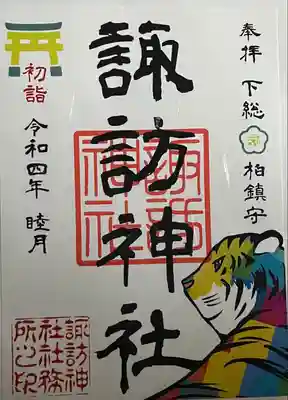 奉拝 下総 柏鎮守
諏訪神社
初詣
令和四年 睦月
諏訪神社
諏訪神
社社務
所之印